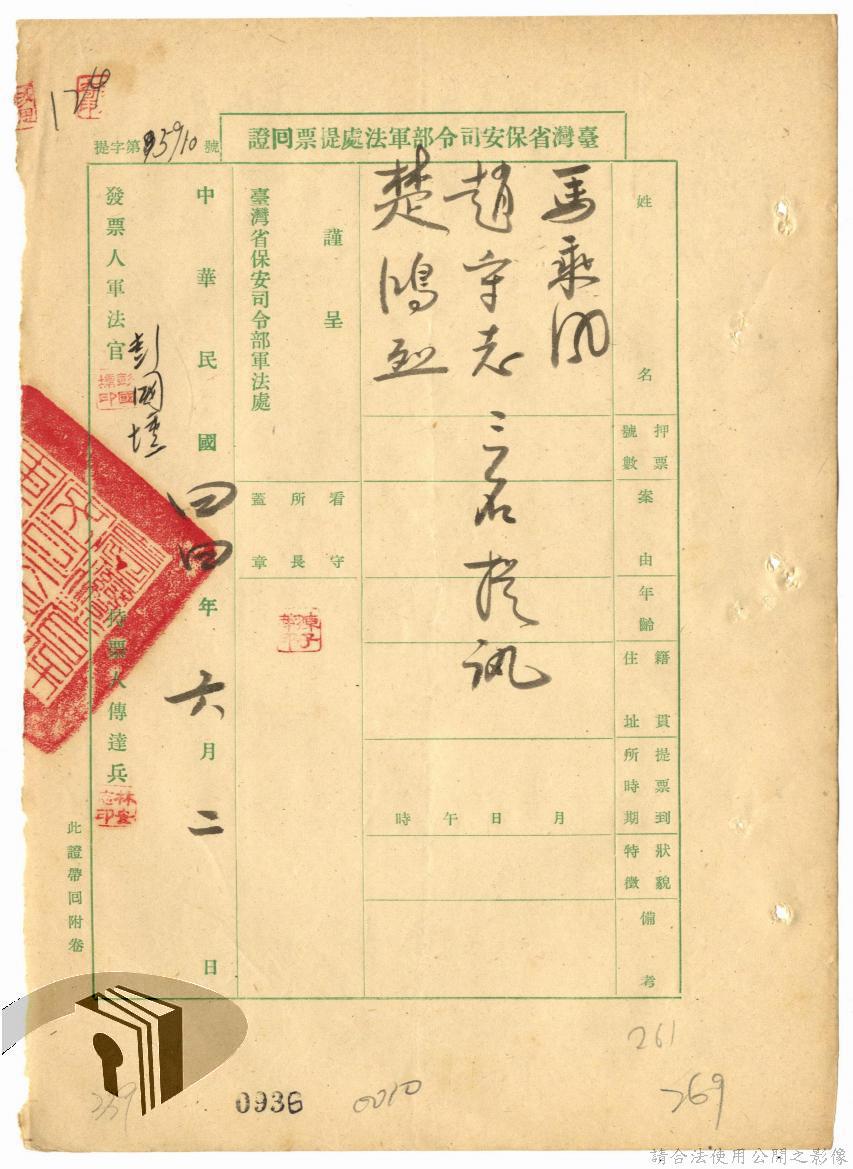 臺灣省保安司令部軍法處提票回證
提字第5910號
姓名
押票號數
案由
年齡
籍貫住址
提票到所時期
狀貌特徵
備考
馬乘風
趙守志
楚鴻烈
三名提訊
月 日 午 時
謹呈
臺灣省保安司令部軍法處
看守所長蓋章
中華民國四四年六月二日
發票人軍法官 彭國壎
持票人傳達兵
此證帶回附卷
261
269
0936
0010
259
請合法使用公開之影像